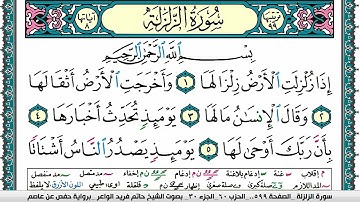 سُورَةُ الزَّلْزَلَةِ
بِسْمِ اللَّهِ الرَّحْمَٰنِ الرَّحِيمِ
إِذَا زُلْزِلَتِ الْأَرْضُ زِلْزَالَهَا ١ وَأَخْرَجَتِ الْأَرْضُ أَثْقَالَهَا
٢ وَقَالَ الْإِنسَانُ مَا لَهَا ٣ يَوْمَئِذٍ تُحَدِّثُ أَخْبَارَهَا ٤
بِأَنَّ رَبَّكَ أَوْحَىٰ لَهَا ٥ يَوْمَئِذٍ يَصْدُرُ النَّاسُ أَشْتَاتًا
سورة الزلزلة - الصفحة ٥٩٩ - الحزب ٦٠ - الجزء ٣٠ - بصوت الشيخ حاتم فريد الواعر - برواية حفص عن عاصم